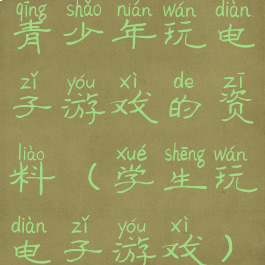 qīng shǎo nián wán diàn
青少年玩电
zǐ yóu xì de zī
子游戏的资
liào xué shēng wán
料（学生玩
diàn zǐ yóu xì
电子游戏）